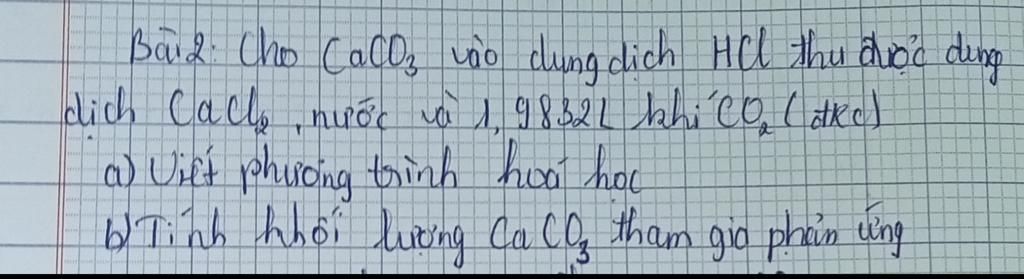 Bài 2: Cho CaCO₃ vào dung dịch HCl thu được dung
dịch CaCl₂, nước và 1,9832L khí CO₂ (đkc)
a) Viết phương trình hoá học
b) Tính khối lượng CaCO₃ tham gia phản ứng